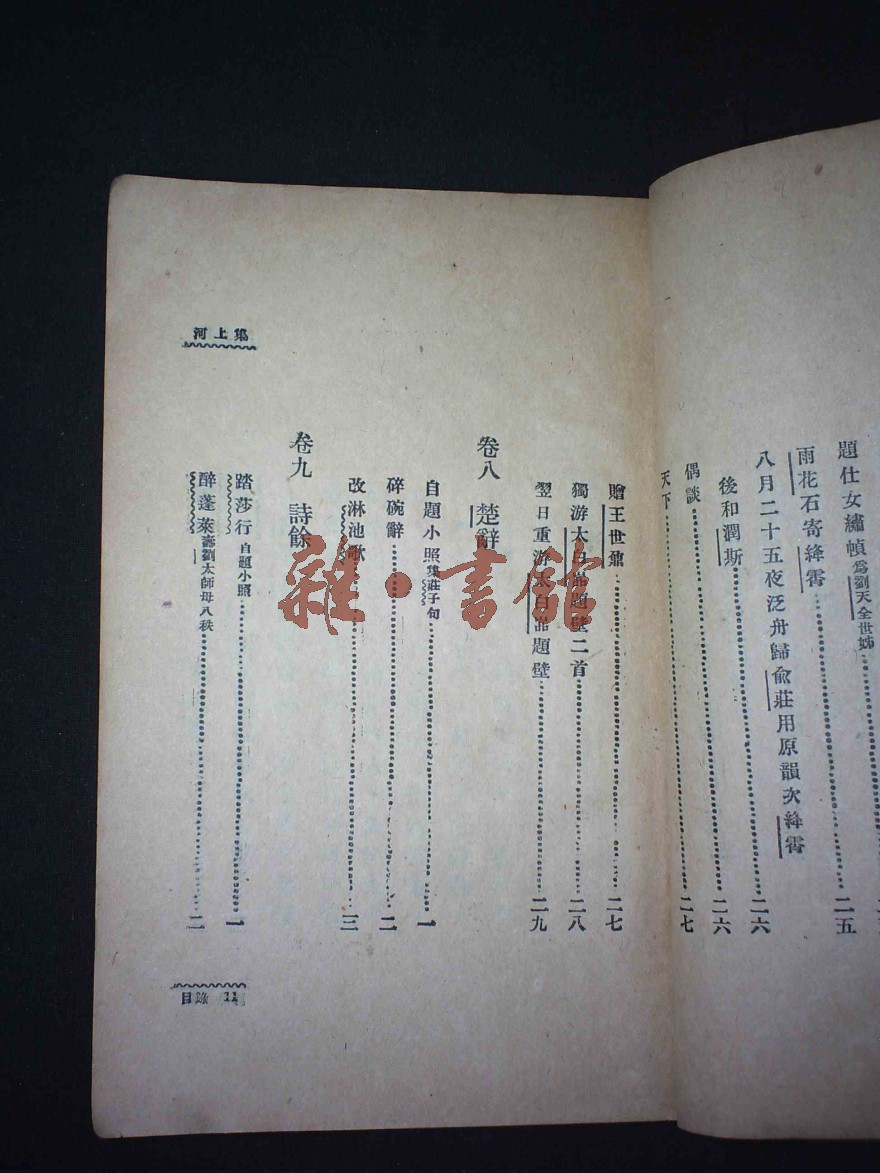 題仕女繡幀為劉天全世姊……二五
雨花石寄絳霄
八月二十五夜泛舟歸俞莊用原韻次絳霄……二六
後和潤斯……二六
偶談
天下……二七
贈王世鼐……二七
獨游太白岩題壁二首……二八
翌日重游太白岩題壁……二九
卷八 楚辭
自題小照集莊子句……一
碎碗辭……二
改淋池歌……三
卷九 詩餘
踏莎行自題小照……一
醉蓬萊壽劉太師母八秩……二
河上集
目錄 11
雜·書館